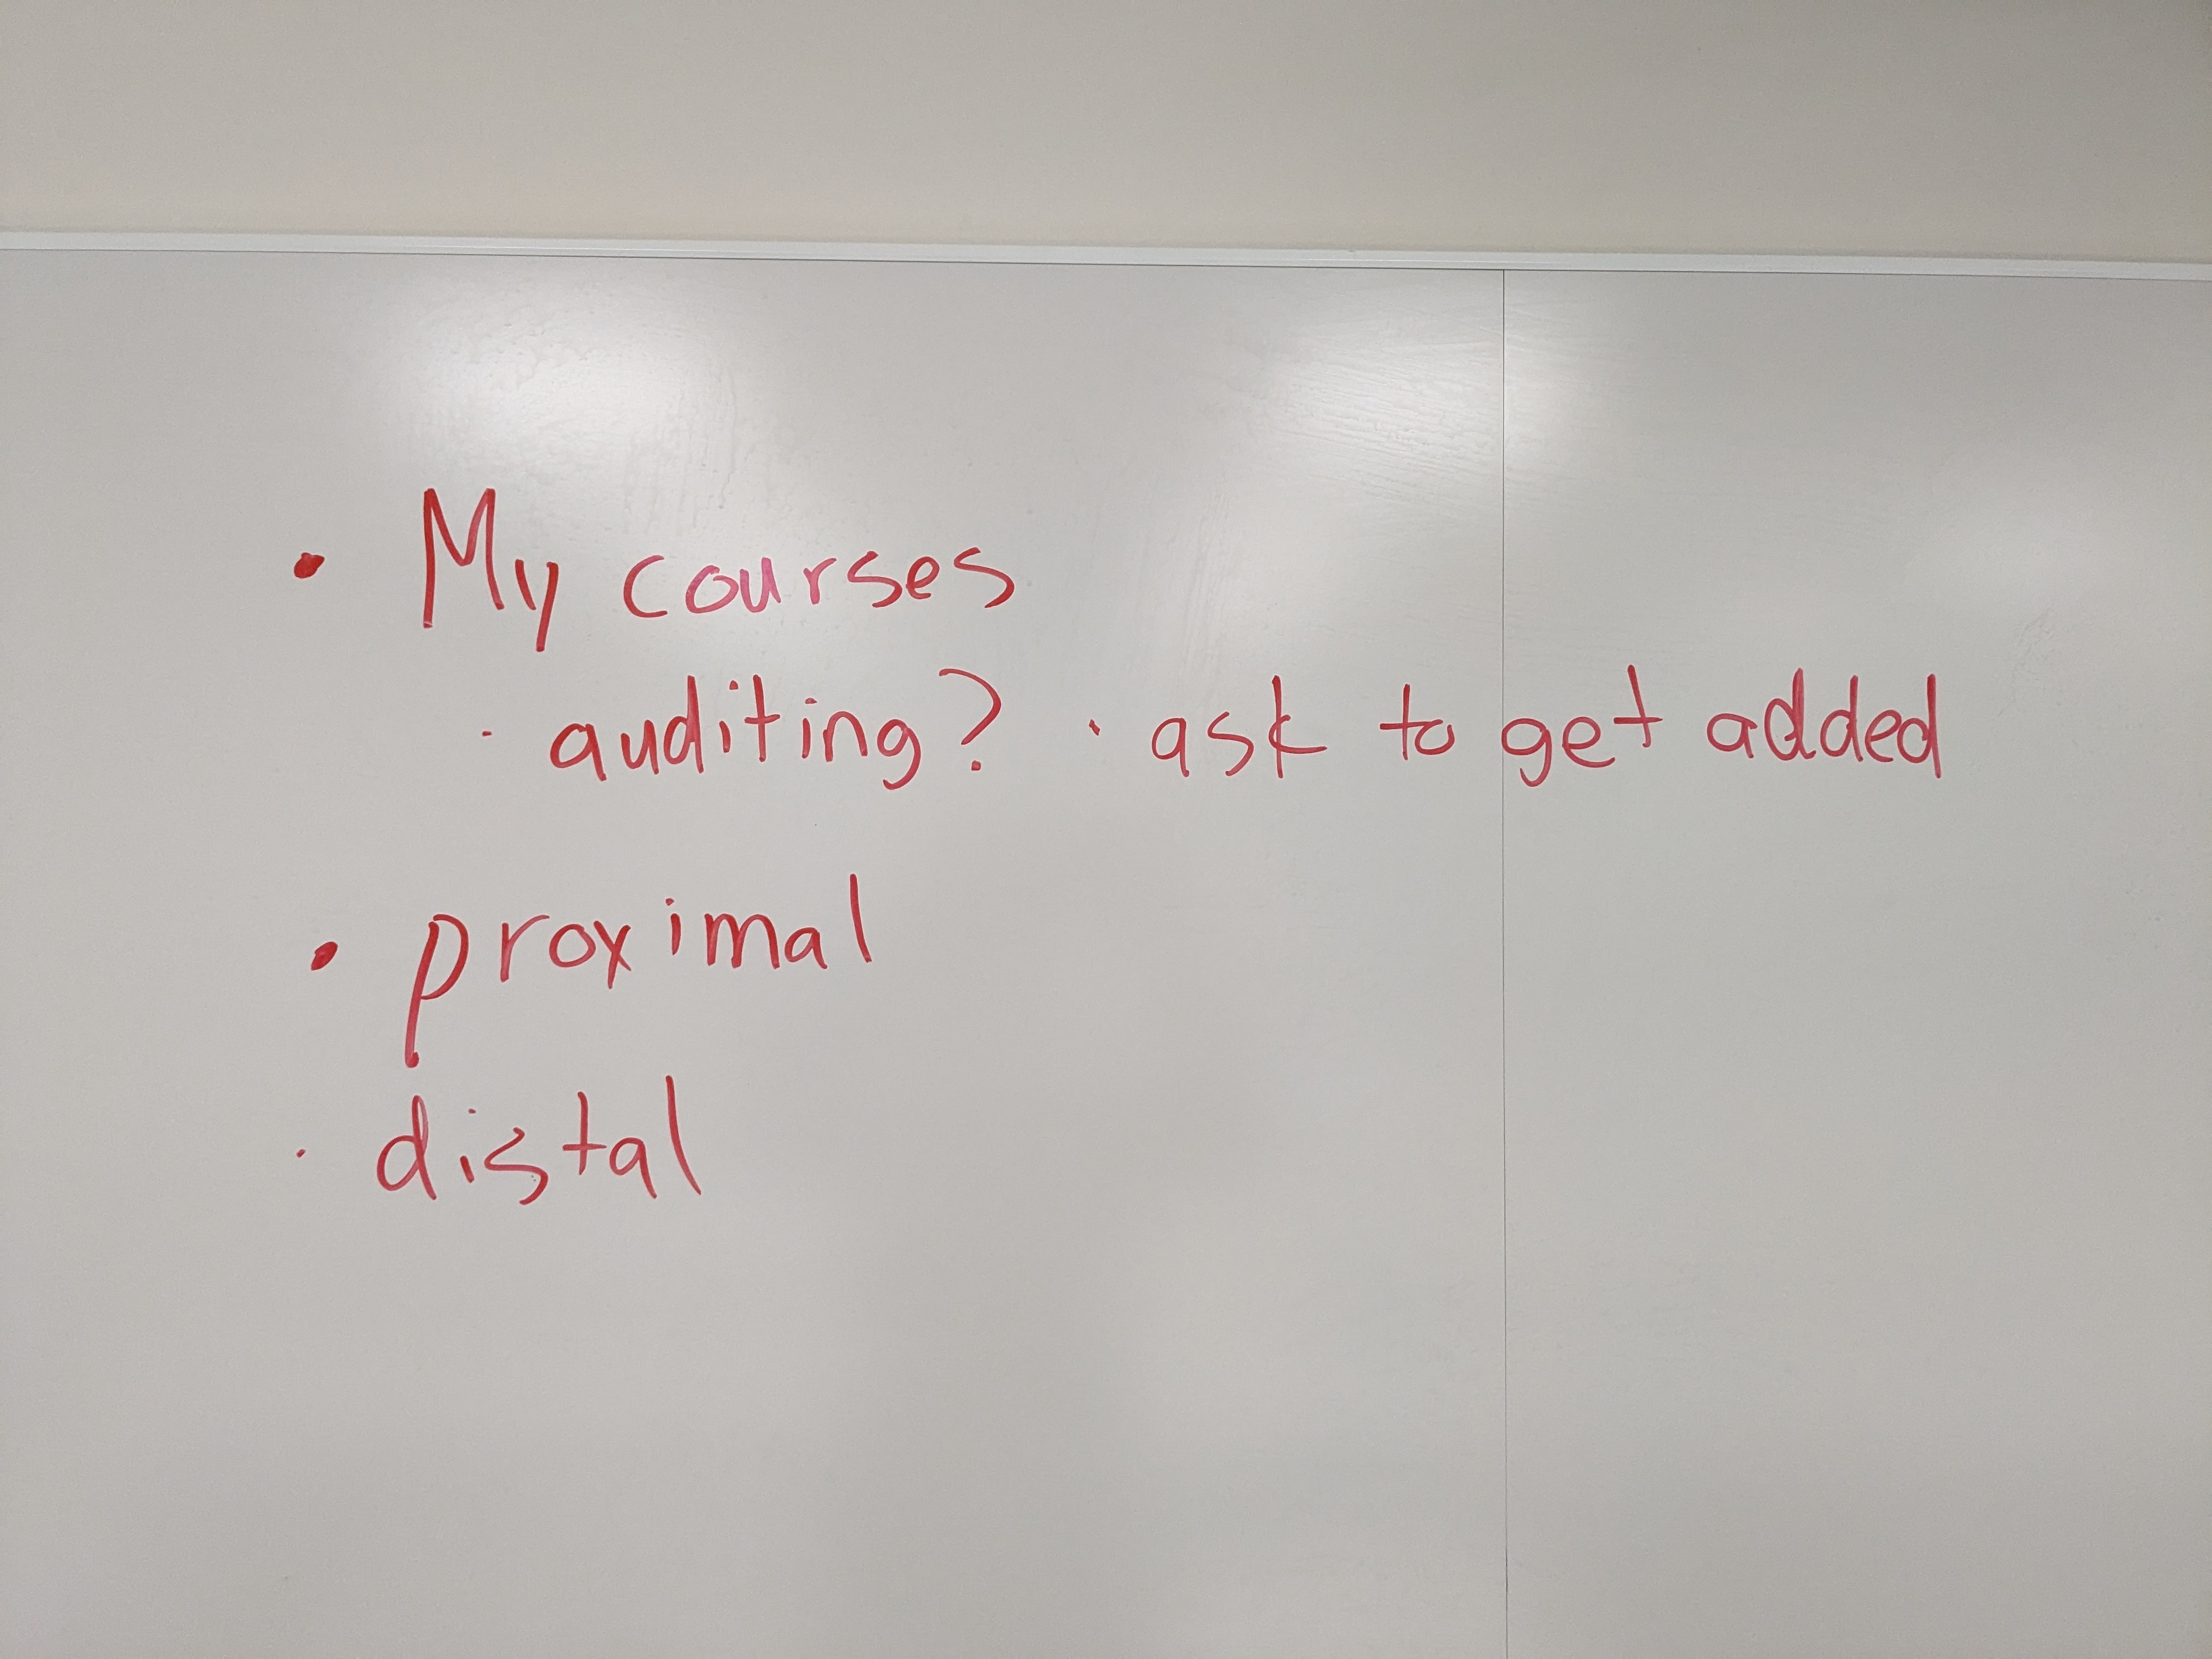 • My courses
· auditing? · ask to get added
• proximal
· distal